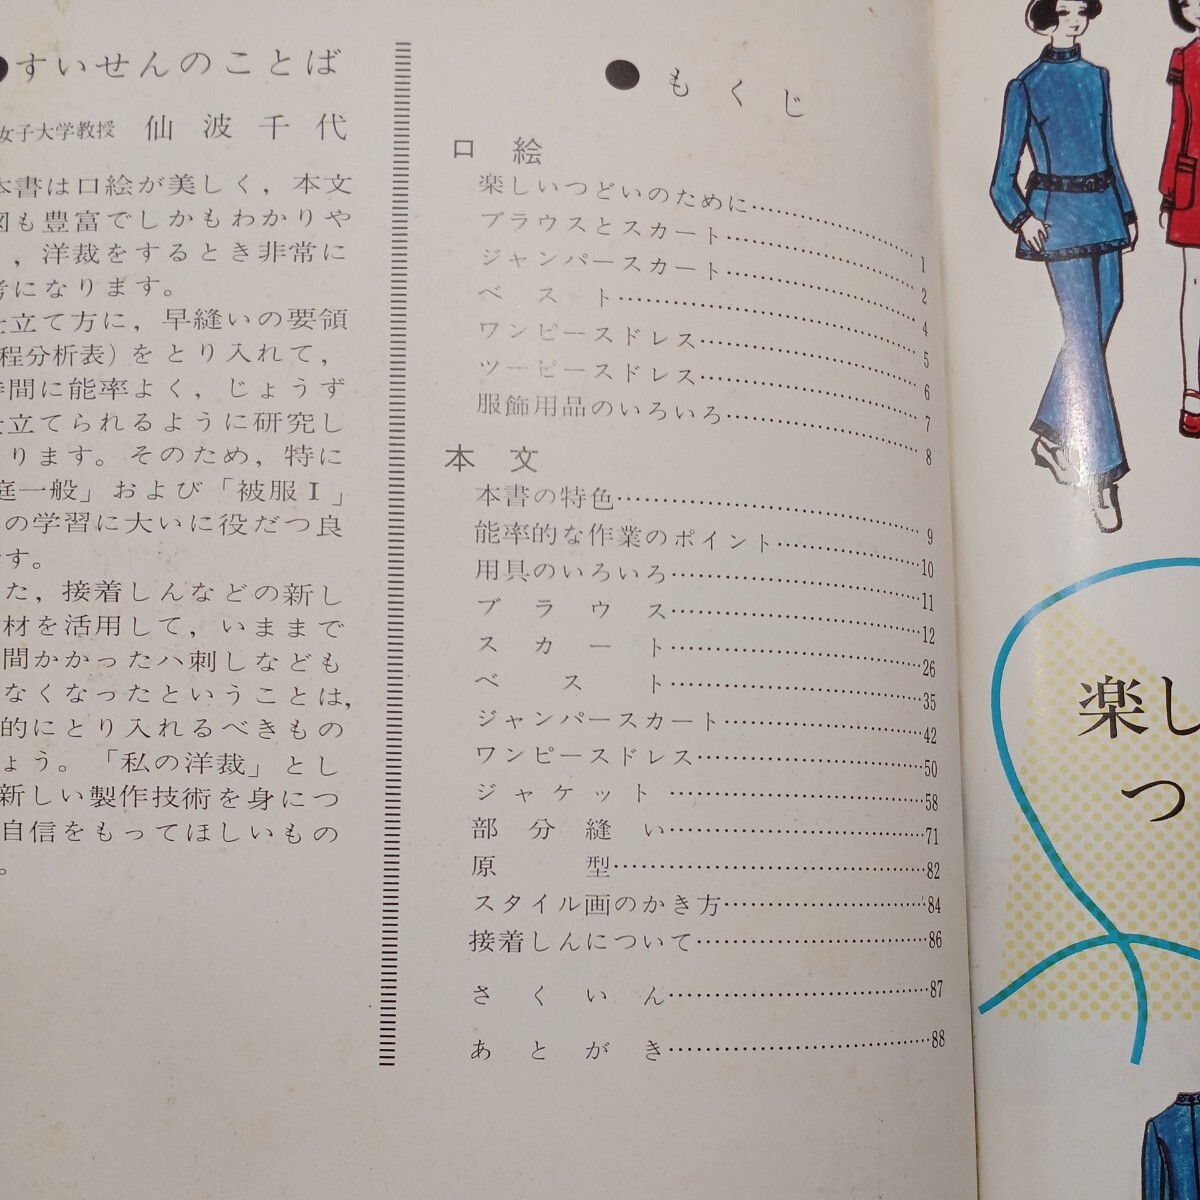 ●すいせんのことば
女子大学教授 仙波千代
本書は口絵が美しく，本文
図も豊富でしかもわかりや
，洋裁をするとき非常に
考になります。
仕立て方に，早縫いの要領
程分析表）をとり入れて，
時間に能率よく，じょうず
仕立てられるように研究し
ります。そのため，特に
庭一般」および「被服Ⅰ」
の学習に大いに役だつ良
です。
た，接着しんなどの新し
材を活用して，いままで
間かかったハ刺しなども
なくなったということは，
的にとり入れるべきもの
ょう。「私の洋裁」とし
新しい製作技術を身につ
自信をもってほしいもの
。
●もくじ
口絵
楽しいつどいのために……………1
ブラウスとスカート……………2
ジャンパースカート……………4
ベスト……………5
ワンピースドレス……………6
ツーピースドレス……………7
服飾用品のいろいろ……………8
本文
本書の特色……………9
能率的な作業のポイント……………10
用具のいろいろ……………11
ブラウス……………12
スカート……………26
ベスト……………35
ジャンパースカート……………42
ワンピースドレス……………50
ジャケット……………58
部分縫い……………71
原型……………82
スタイル画のかき方……………84
接着しんについて……………86
さくいん……………87
あとがき……………88
楽し
つ